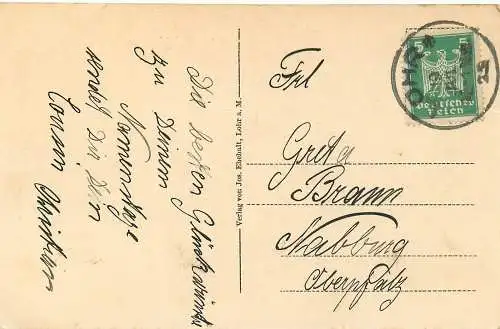 Die besten Glückwünsche
zu Deinem
Namenstage
sendet Dir Dein
Cousin Christian
Verlag von Jos. Ehehalt, Lohr a. M.
Frl
Greta
Braun
Nabburg
Oberpfalz
5 5
Deutsches
Reich
LOHR